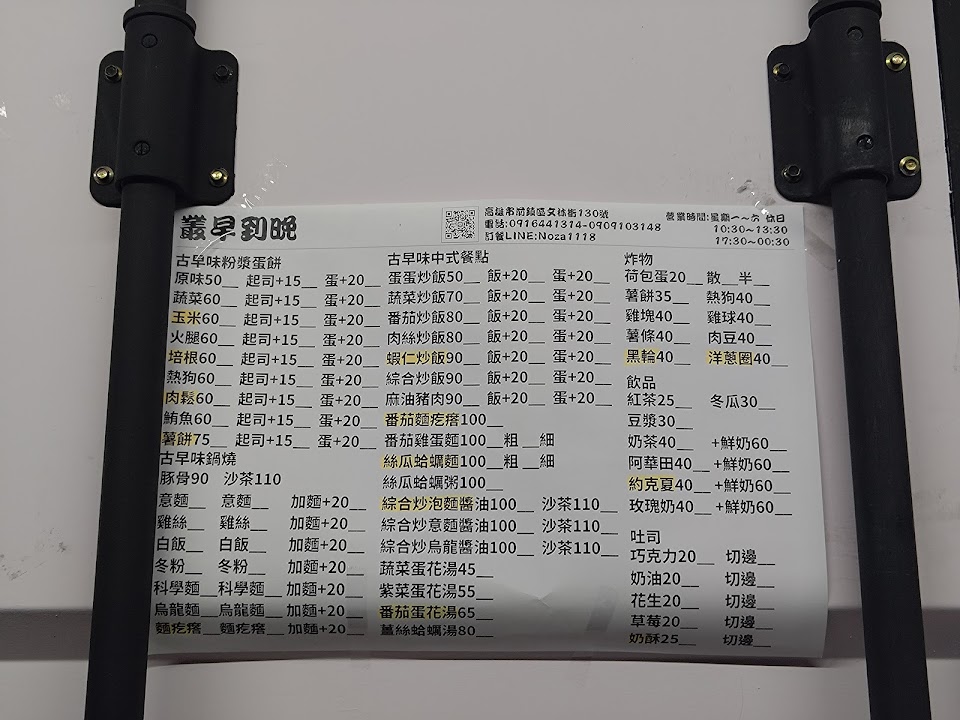 叢早到晚
高雄市前鎮區文橫街130號
電話:0916441314-0909103148
訂餐LINE:Noza1118
營業時間:星期一~六 休日
10:30~13:30
17:30~00:30
古早味粉漿蛋餅
原味50__ 起司+15__ 蛋+20__
蔬菜60__ 起司+15__ 蛋+20__
玉米60__ 起司+15__ 蛋+20__
火腿60__ 起司+15__ 蛋+20__
培根60__ 起司+15__ 蛋+20__
熱狗60__ 起司+15__ 蛋+20__
肉鬆60__ 起司+15__ 蛋+20__
鮪魚60__ 起司+15__ 蛋+20__
薯餅75__ 起司+15__ 蛋+20__
古早味鍋燒
豚骨90 沙茶110
意麵__ 意麵__ 加麵+20__
雞絲__ 雞絲__ 加麵+20__
白飯__ 白飯__ 加麵+20__
冬粉__ 冬粉__ 加麵+20__
科學麵__科學麵__ 加麵+20__
烏龍麵__烏龍麵__ 加麵+20__
麵疙瘩__麵疙瘩__ 加麵+20__
古早味中式餐點
蛋蛋炒飯50__ 飯+20__ 蛋+20__
蔬菜炒飯70__ 飯+20__ 蛋+20__
番茄炒飯80__ 飯+20__ 蛋+20__
肉絲炒飯80__ 飯+20__ 蛋+20__
蝦仁炒飯90__ 飯+20__ 蛋+20__
綜合炒飯90__ 飯+20__ 蛋+20__
麻油豬肉90__ 飯+20__ 蛋+20__
番茄麵疙瘩100__
番茄雞蛋麵100__粗__細
絲瓜蛤蠣麵100__粗__細
絲瓜蛤蠣粥100__
綜合炒泡麵醬油100__ 沙茶110__
綜合炒意麵醬油100__ 沙茶110__
綜合炒烏龍醬油100__ 沙茶110__
蔬菜蛋花湯45__
紫菜蛋花湯55__
番茄蛋花湯65__
薑絲蛤蠣湯80__
炸物
荷包蛋20__ 散__半__
薯餅35__ 熱狗40__
雞塊40__ 雞球40__
薯條40__ 肉豆40__
黑輪40__ 洋蔥圈40__
飲品
紅茶25__ 冬瓜30__
豆漿30__
奶茶40__ +鮮奶60__
阿華田40__ +鮮奶60__
約克夏40__ +鮮奶60__
玫瑰奶40__ +鮮奶60__
吐司
巧克力20__ 切邊__
奶油20__ 切邊__
花生20__ 切邊__
草莓20__ 切邊__
奶酥25__ 切邊__